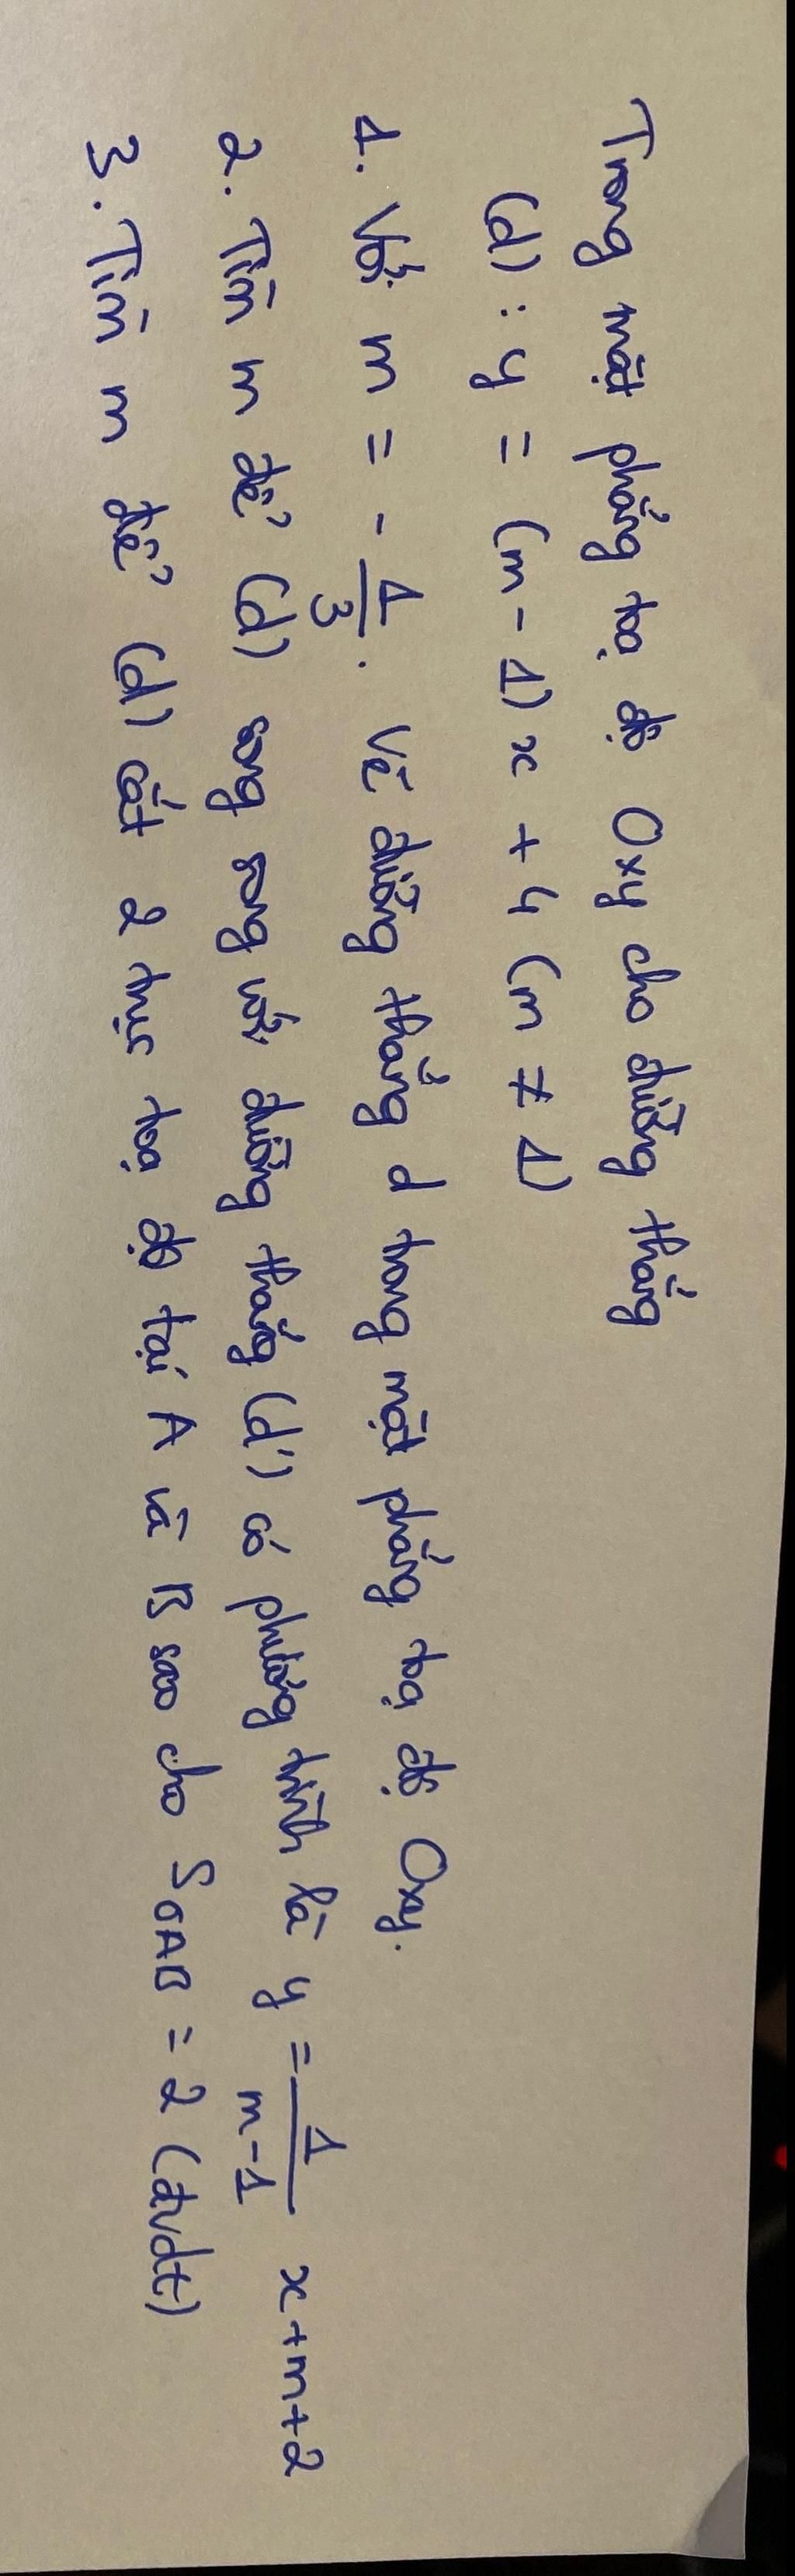 Trong mặt phẳng toạ độ Oxy cho đường thẳng
(d) : y = (m - 1)x + 4 (m ≠ 1)
1. Với m = - 1/3. Vẽ đường thẳng d trong mặt phẳng toạ độ Oxy.
2. Tìm m để (d) song song với đường thẳng (d') có phương trình là y = 1/(m-1) x + m + 2
3. Tìm m để (d) cắt 2 trục toạ độ tại A và B sao cho SOAB = 2 (đvdt)